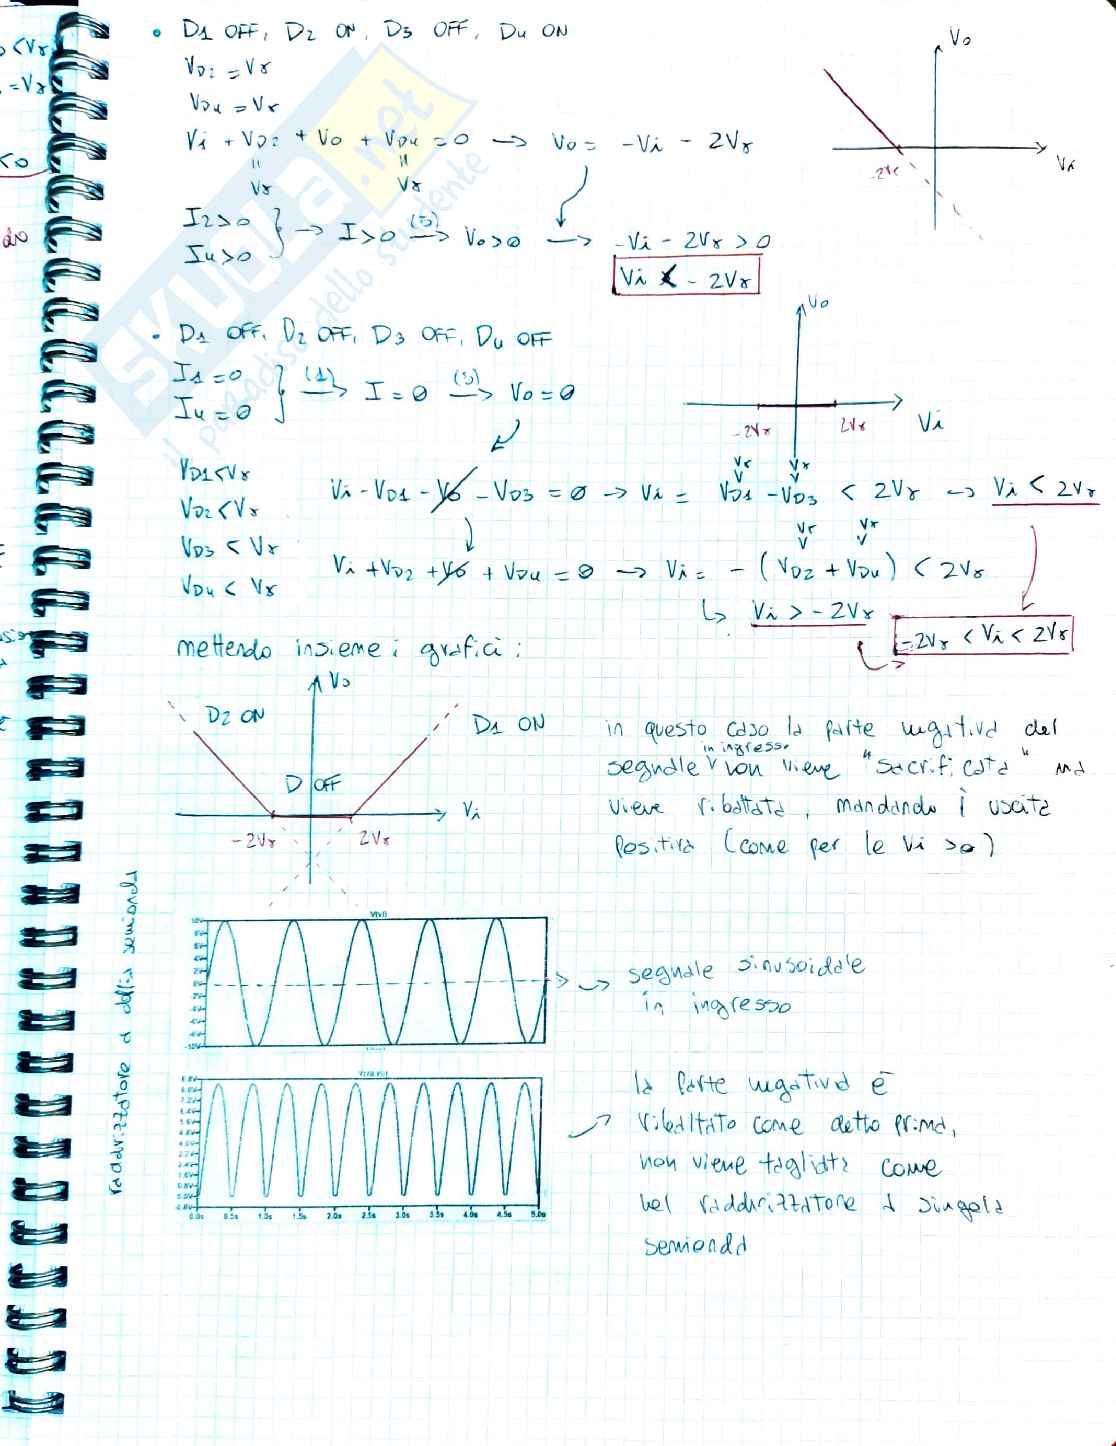 • D1 OFF, D2 ON, D3 OFF, D4 ON
VD2 = Vγ
VD4 = Vγ
Vi + VD2 + Vo + VD4 = 0 → Vo = -Vi - 2Vγ
" "
Vγ Vγ
I2>0
I4>0 } → I>0 (5)→ Vo>0 → -Vi - 2Vγ > 0
Vi < - 2Vγ
Vo
Vi
-2Vγ
• D1 OFF, D2 OFF, D3 OFF, D4 OFF
I1=0
I4=0 } (1)→ I=0 (5)→ Vo=0
Vo
Vi
-2Vγ 2Vγ
VD1<Vγ
VD2<Vγ
VD3<Vγ
VD4<Vγ
Vγ Vγ
Vi - VD1 - Vo - VD3 = 0 → Vi = VD1 - VD3 < 2Vγ → Vi < 2Vγ
Vγ Vγ
Vi + VD2 + Vo + VD4 = 0 → Vi = - (VD2 + VD4) < 2Vγ
↳ Vi > -2Vγ
-2Vγ < Vi < 2Vγ
mettendo insieme i grafici:
Vo
D2 ON
D1 ON
D OFF
Vi
-2Vγ 2Vγ
in questo caso la parte negativa del
segnale in ingresso non viene "sacrificata" ma
viene ribaltata, mandando i uscita
positiva (come per le Vi >0)
raddrizzatore a doppia semionda
V(vi)
10V
8V
6V
4V
2V
0V
-2V
-4V
-6V
-8V
-10V
→ segnale sinusoidale
in ingresso
8.8V
8.0V
7.2V
6.4V
5.6V
4.8V
4.0V
3.2V
2.4V
1.6V
0.8V
0.0V
-0.8V
0.0s 0.5s 1.0s 1.5s 2.0s 2.5s 3.0s 3.5s 4.0s 4.5s 5.0s
la parte negativa è
ribaltato come detto prima,
non viene tagliata come
nel raddrizzatore a singola
semionda
SKUOLA.net
il paradiso dello studente
<Vγ
=Vγ
<0